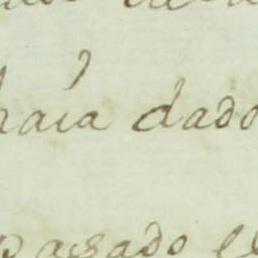 haia dado
pasado el